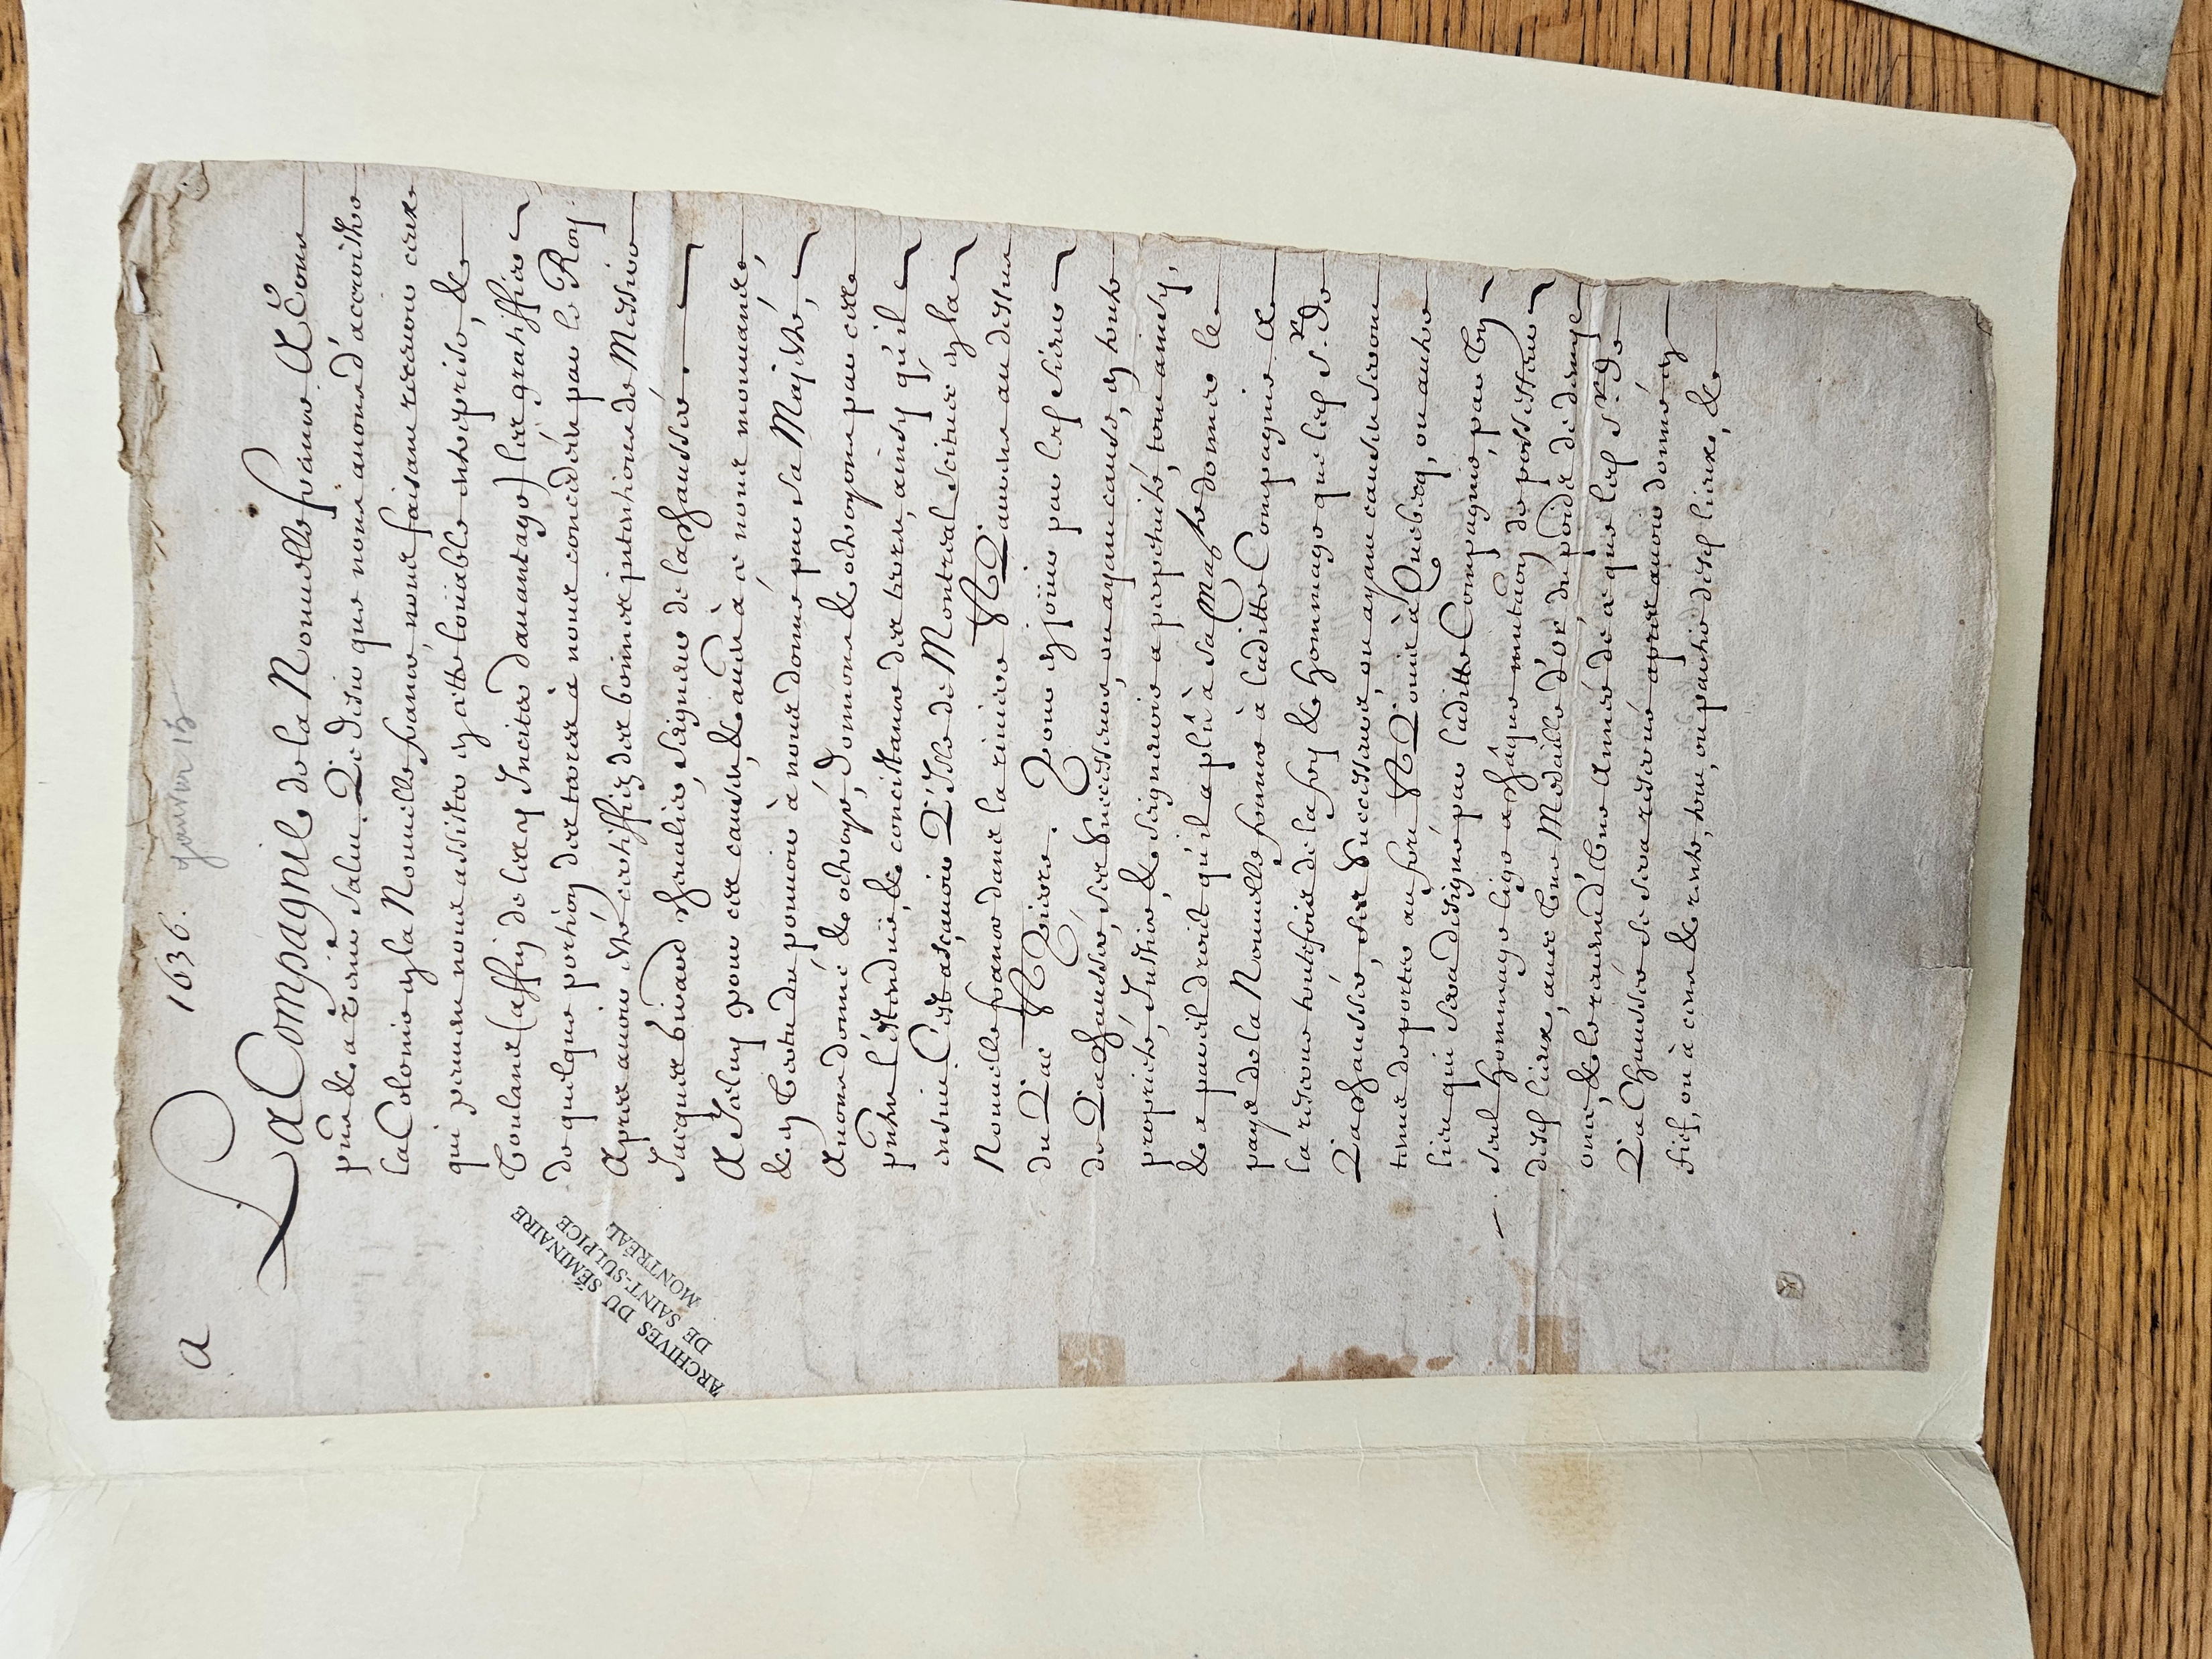 a
1636. Janvier 15
La Compagnie de la Nouvelle france A toꝯ
pn̄s & aduenir Salut. Le desir que nous auons d'accroistre
la Colonie en la Nouuelle france, nous faisant receuoir ceux
qui peuuent nous assister en cette loüable entreprise, &
Voulant (affin de les y Inciter dauantage) les gratiffier
de quelque portion des terres à nous concedées par le Roy
Apres auoir esté certiffiez des bonnes intentions de Messire
Jacques Girard cheualier, Seigneur de la chaussée.
A Iceluy pour ces causes, & autres à nous mouuants,
& en Vertu du pouuoir à nous donné par sa Majesté,
Auons donné & octroyé, donnons & octroyons par ces
pn̄tes l'estendue, & consistance des terres, ainsy qu'il
ensuit C'est ascauoir L'Isle de Montreal scituée en la
Nouuelle france dans la riuiere St Laurens au dessus
du Lac St Pierre. Pour en joüir par led Sieur
de La chaussée, ses Successeurs, ou ayans cause, en toute
proprieté, Justice, & seigneurie a perpetuité, tout ainsy,
& a pareil droit qu'il a plû à sa Maᵗᵉ de donner le
pays de la Nouuelle france à laditte Compagnie A
la reserue toutesfois de la foy & hommage que led Sʳ. de
La chaussée, ses Successeurs, ou ayans cause seront
tenus de porter au fort St Louis à Quebecq, ou autre
lieu qui sera designé par laditte Compagnie, par Vn
seul hommage lige a chaque mutation de possesseur
desd lieux, auec Vne Medaille d'or du poids de demye
once, & le reuenu d'Vne Année de ce que led Sʳ. de
La Chaussée se sera reserué apres auoir donné en
fief, ou à cens & rente, tout, ou partie desd lieux, &
ARCHIVES DU SÉMINAIRE
DE SAINT-SULPICE
MONTRÉAL